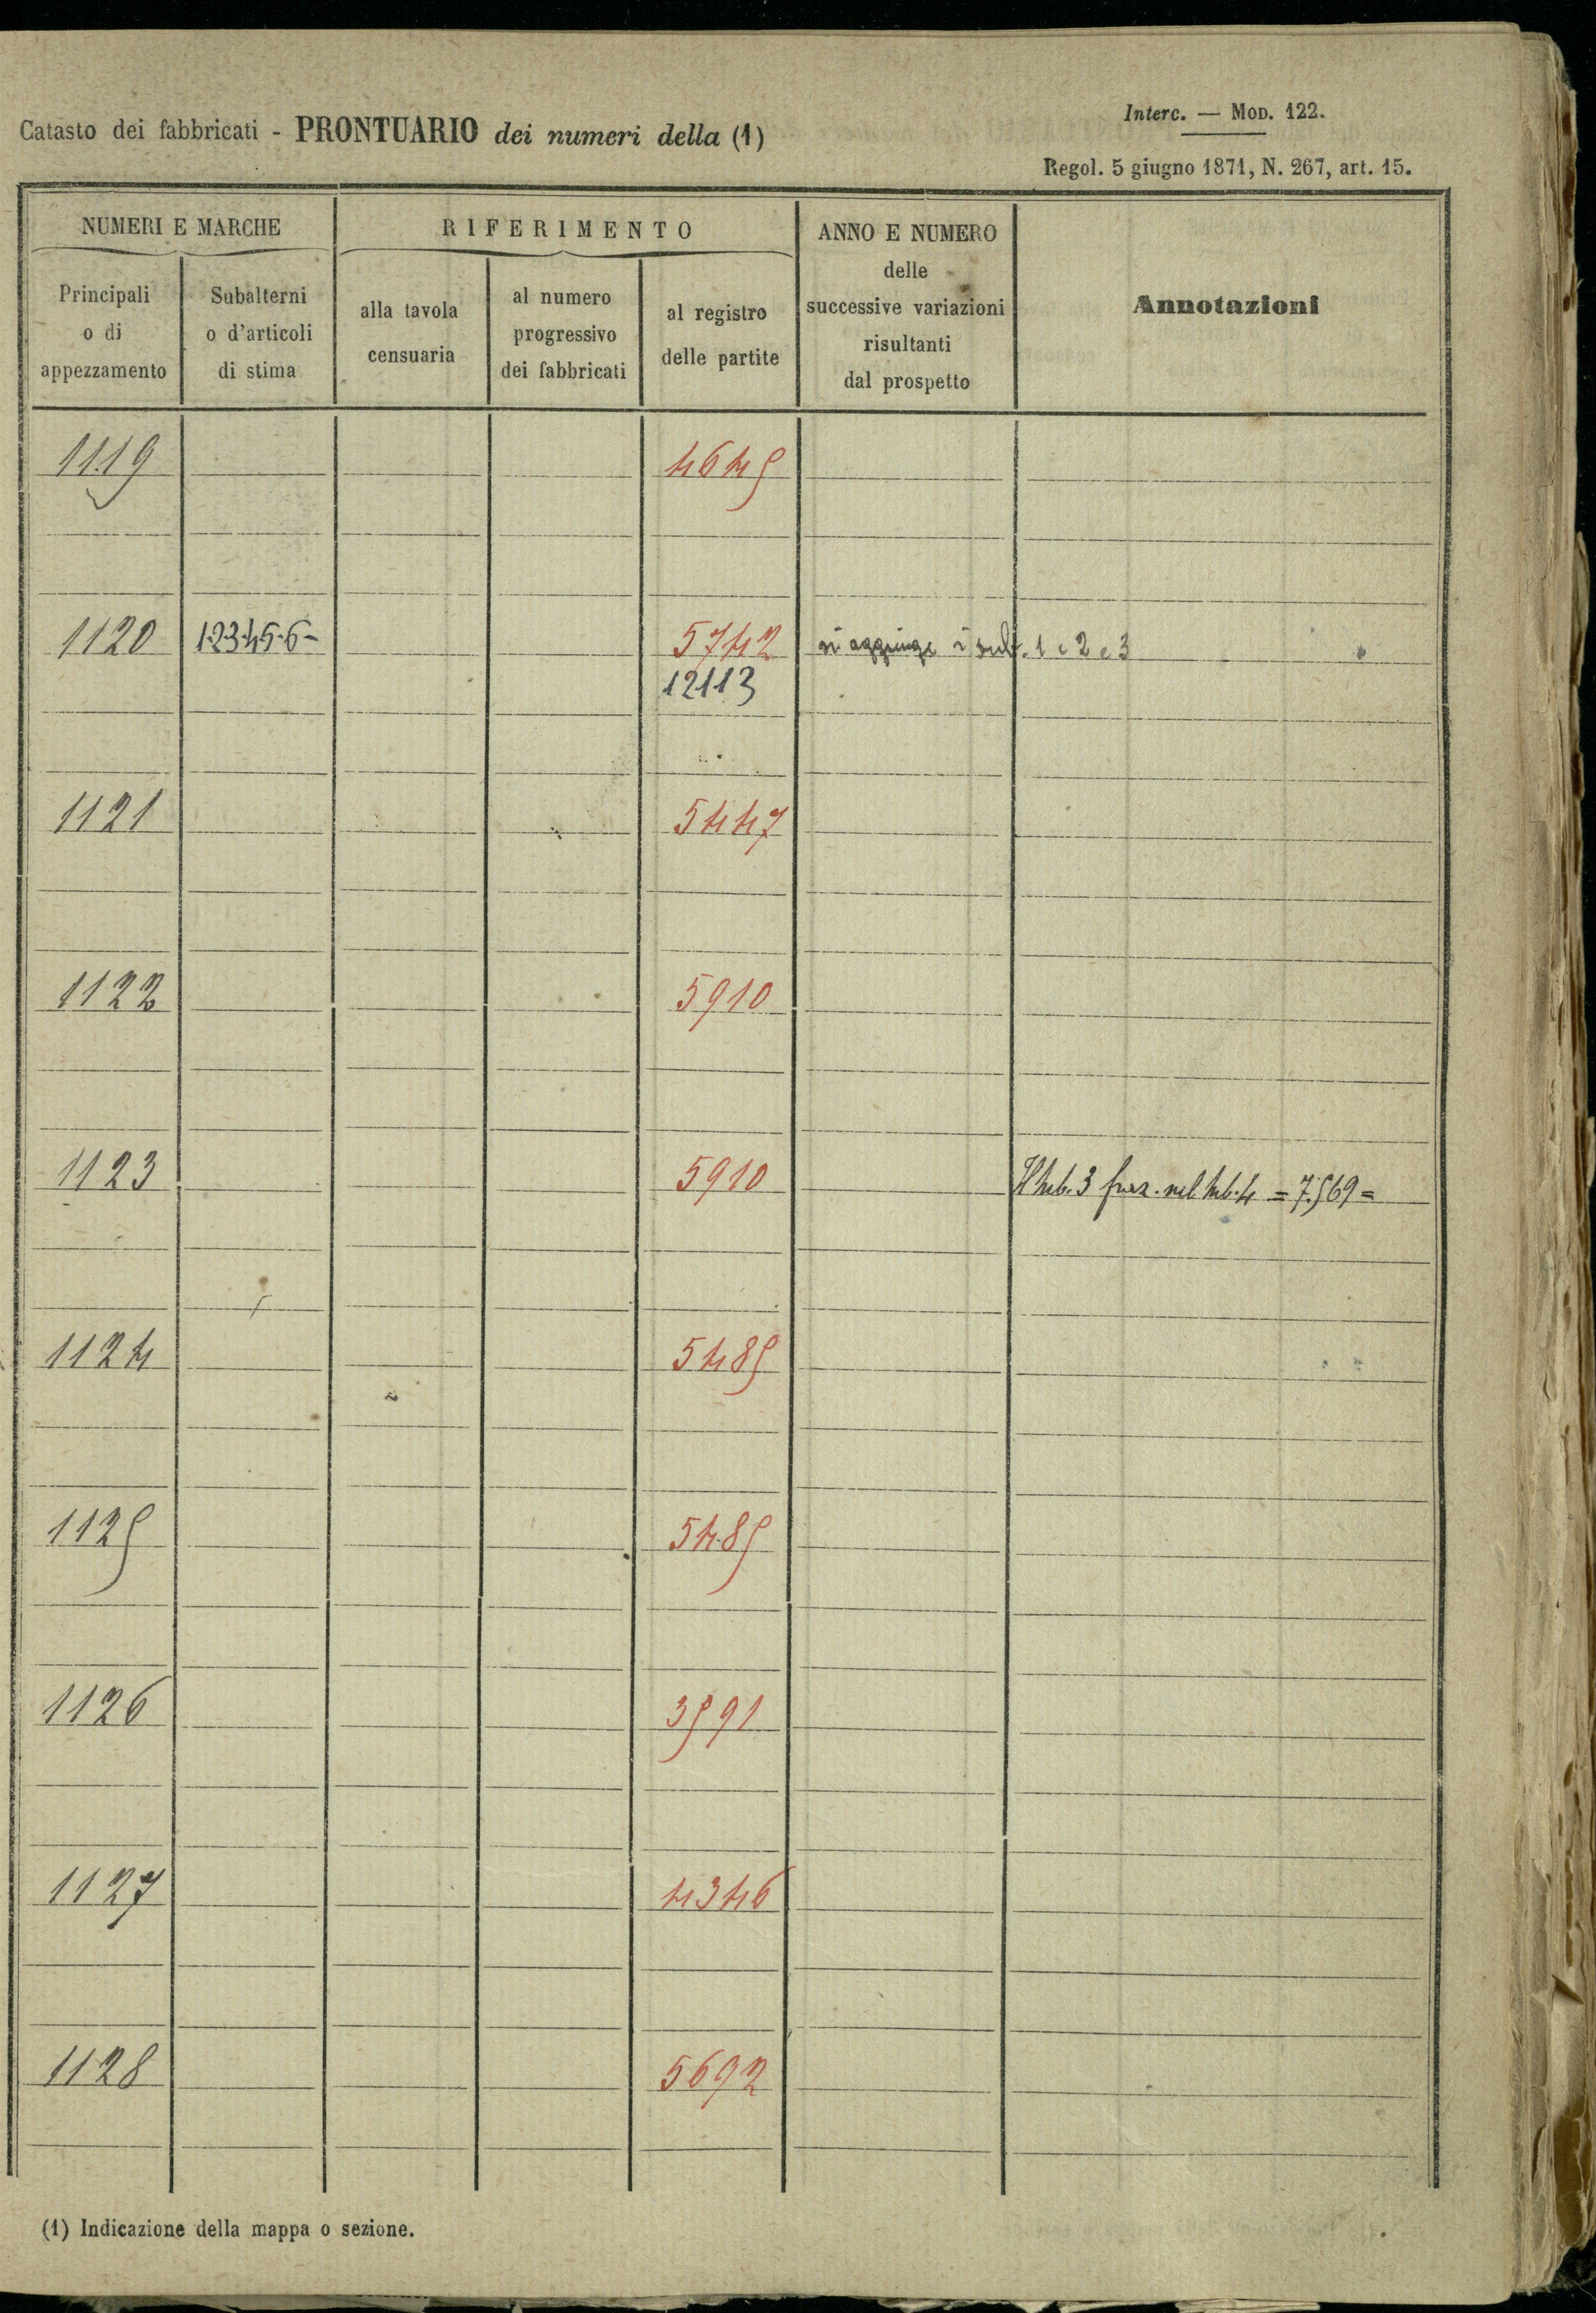 Interc. — MOD. 122.
Catasto dei fabbricati - PRONTUARIO dei numeri della (1)
Regol. 5 giugno 1871, N. 267, art. 15.
NUMERI E MARCHE
RIFERIMENTO
ANNO E NUMERO
delle
successive variazioni
risultanti
dal prospetto
Annotazioni
Principali
o di
appezzamento
Subalterni
o d'articoli
di stima
alla tavola
censuaria
al numero
progressivo
dei fabbricati
al registro
delle partite
1119 4645
1120 1-2-3-4-5-6- 5742 si aggiunge i sub. 1 e 2 e 3
12113
1121 5447
1122 5910
1123 5910 Il sub. 3 nel sub. 4 = 7.569 =
1124 5485
1125 5485
1126 3591
1127 4346
1128 5692
(1) Indicazione della mappa o sezione.